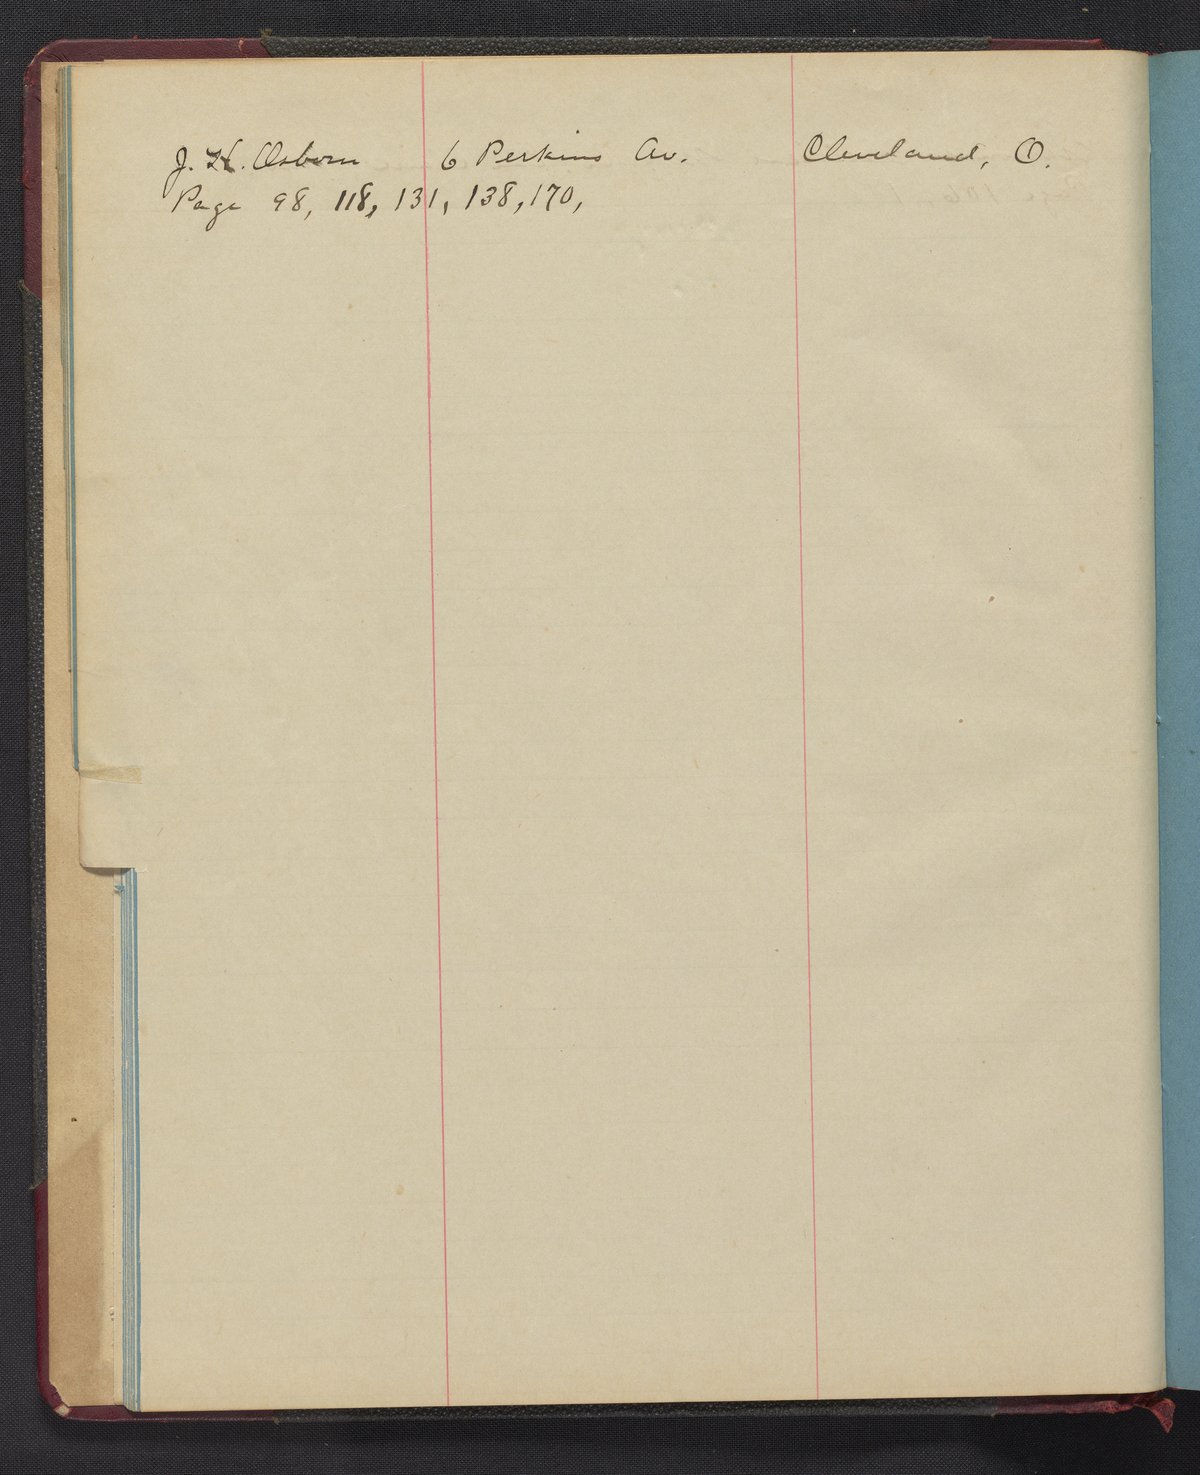 J. H. Osborn 6 Perkins Av. Cleveland, O.
Page 98, 118, 131, 138, 170,